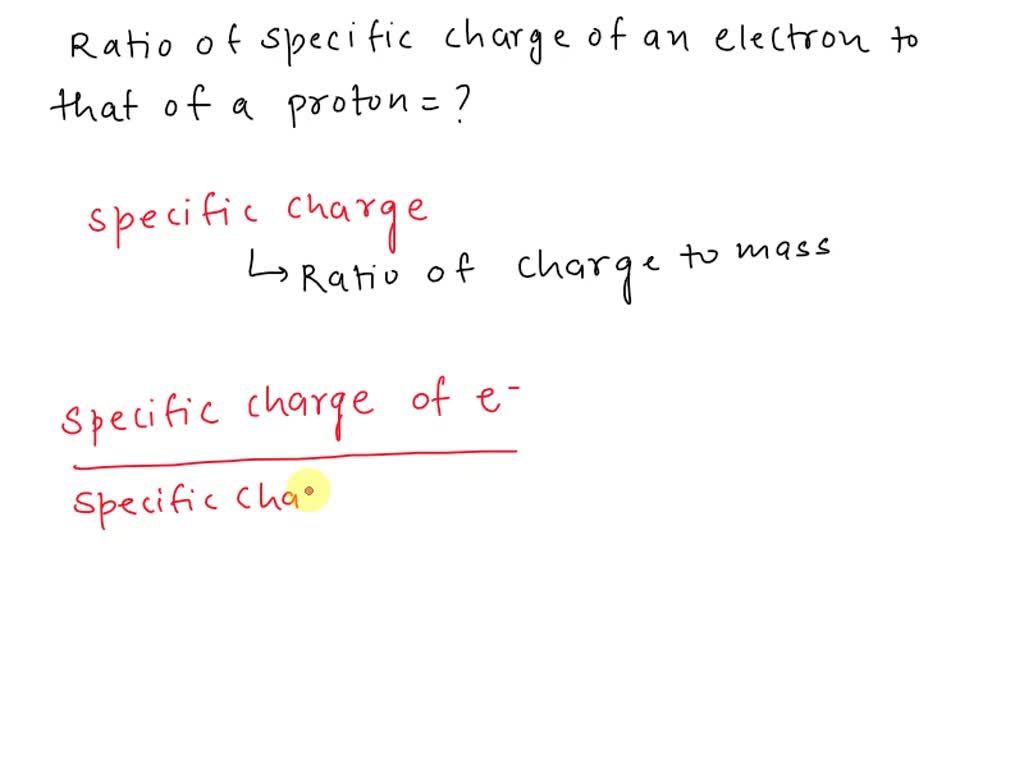 Ratio of specific charge of an electron to
that of a proton = ?
specific charge
↳ Ratio of charge to mass
specific charge of e⁻
specific cha